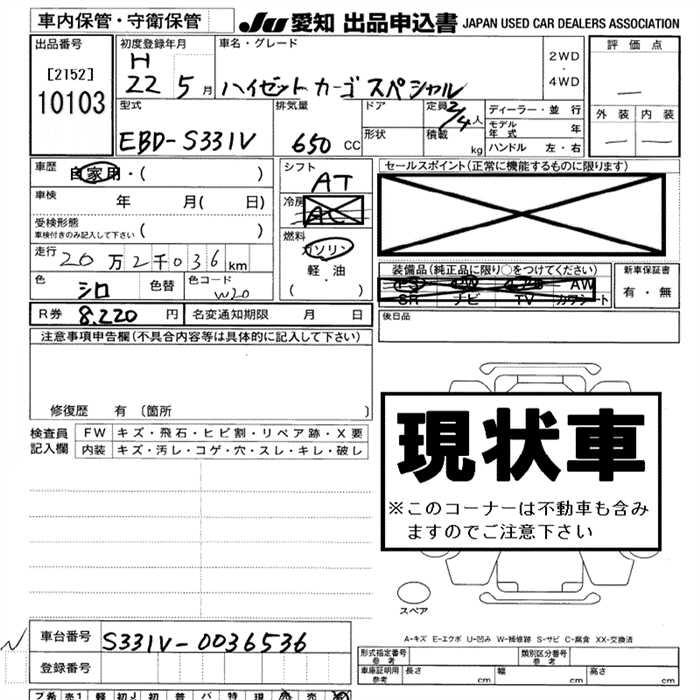 車内保管・守衛保管
JU 愛知 出品申込書 JAPAN USED CAR DEALERS ASSOCIATION
出品番号
[2152]
10103
初度登録年月
H
22 5月
車名・グレード
ハイゼットカーゴ スペシャル
2WD
・
4WD
評価点
―
外装 内装
― ―
型式
EBD-S331V
排気量
650 CC
ドア
形状
定員 2/4人
積載 kg
ディーラー・並行
モデル年式 年
ハンドル 左・右
車歴
自家用・( )
車検
年 月( 日)
受検形態
車検付きのみ記入して下さい ( )
走行
20万2千036km
色
シロ
色替
色コード
W20
シフト
AT
冷房
AC
燃料
ガソリン
軽油
( ・ )
セールスポイント(正常に機能するものに限ります)
装備品(純正品に限り○をつけてください)
PS PW AW
SR ナビ TV カワシート
新車保証書
有・無
R券 8,220 円
名変通知期限 月 日
後日品
注意事項申告欄(不具合内容等は具体的に記入して下さい)
修復歴 有 〔箇所 〕
検査員
記入欄
FW キズ・飛石・ヒビ割・リペア跡・X要
内装 キズ・汚レ・コゲ・穴・スレ・キレ・破レ
現状車
※このコーナーは不動車も含み
ますのでご注意下さい
スペア
A-キズ E-エクボ U-凹み W-補修跡 S-サビ C-腐食 XX-交換済
車台番号 S331V-0036536
登録番号
形式指定番号
参考
類別区分番号
参考
車庫証明用
参考
長さ cm 幅 cm 高さ cm